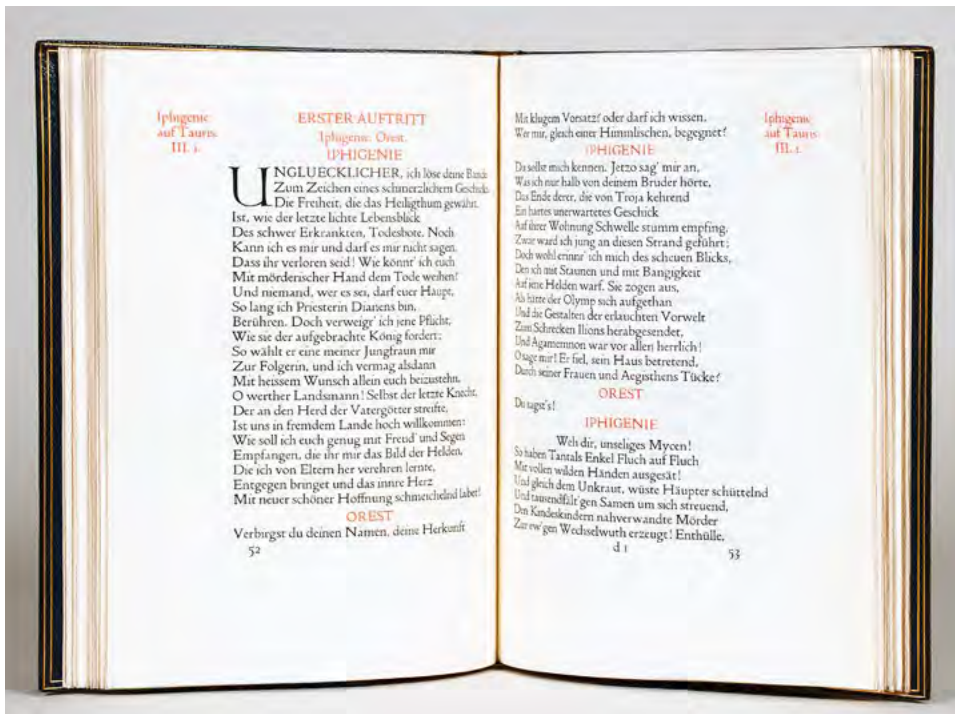 Iphigenie
auf Tauris.
III. 1.
ERSTER AUFTRITT
Iphigenie. Orest.
IPHIGENIE
UNGLUECKLICHER, ich löse deine Bande
Zum Zeichen eines schmerzlichern Geschicks.
Die Freiheit, die das Heiligthum gewährt,
Ist, wie der letzte lichte Lebensblick
Des schwer Erkrankten, Todesbote. Noch
Kann ich es mir und darf es mir nicht sagen,
Dass ihr verloren seid! Wie könnt' ich euch
Mit mörderischer Hand dem Tode weihen?
Und niemand, wer es sei, darf euer Haupt,
So lang ich Priesterin Dianens bin,
Berühren. Doch verweigr' ich jene Pflicht,
Wie sie der aufgebrachte König fordert;
So wählt er eine meiner Jungfraun mir
Zur Folgerin, und ich vermag alsdann
Mit heissem Wunsch allein euch beizustehn.
O werther Landsmann! Selbst der letzte Knecht,
Der an den Herd der Vatergötter streifte,
Ist uns in fremdem Lande hoch willkommen:
Wie soll ich euch genug mit Freud' und Segen
Empfangen, die ihr mir das Bild der Helden,
Die ich von Eltern her verehren lernte,
Entgegen bringet und das innre Herz
Mit neuer schöner Hoffnung schmeichelnd labet!
OREST
Verbirgst du deinen Namen, deine Herkunft
52
Mit klugem Vorsatz? oder darf ich wissen,
Wer mir, gleich einer Himmlischen, begegnet?
IPHIGENIE
Du sollst mich kennen. Jetzo sag' mir an,
Was ich nur halb von deinem Bruder hörte,
Das Ende derer, die von Troja kehrend
Ein hartes unerwartetes Geschick
Auf ihrer Wohnung Schwelle stumm empfing.
Zwar ward ich jung an diesen Strand geführt;
Doch wohl erinnr' ich mich des scheuen Blicks,
Den ich mit Staunen und mit Bangigkeit
Auf jene Helden warf. Sie zogen aus,
Als hätte der Olymp sich aufgethan
Und die Gestalten der erlauchten Vorwelt
Zum Schrecken Ilions herabgesendet,
Und Agamemnon war vor allen herrlich!
O sage mir! Er fiel, sein Haus betretend,
Durch seiner Frauen und Aegisthens Tücke?
OREST
Du sagst's!
IPHIGENIE
Weh dir, unseliges Mycen!
So haben Tantals Enkel Fluch auf Fluch
Mit vollen wilden Händen ausgesät!
Und gleich dem Unkraut, wüste Häupter schüttelnd
Und tausendfält'gen Samen um sich streuend,
Den Kindeskindern nahverwandte Mörder
Zur ew'gen Wechselwuth erzeugt! Enthülle,
d 1
53
Iphigenie
auf Tauris.
III. 1.